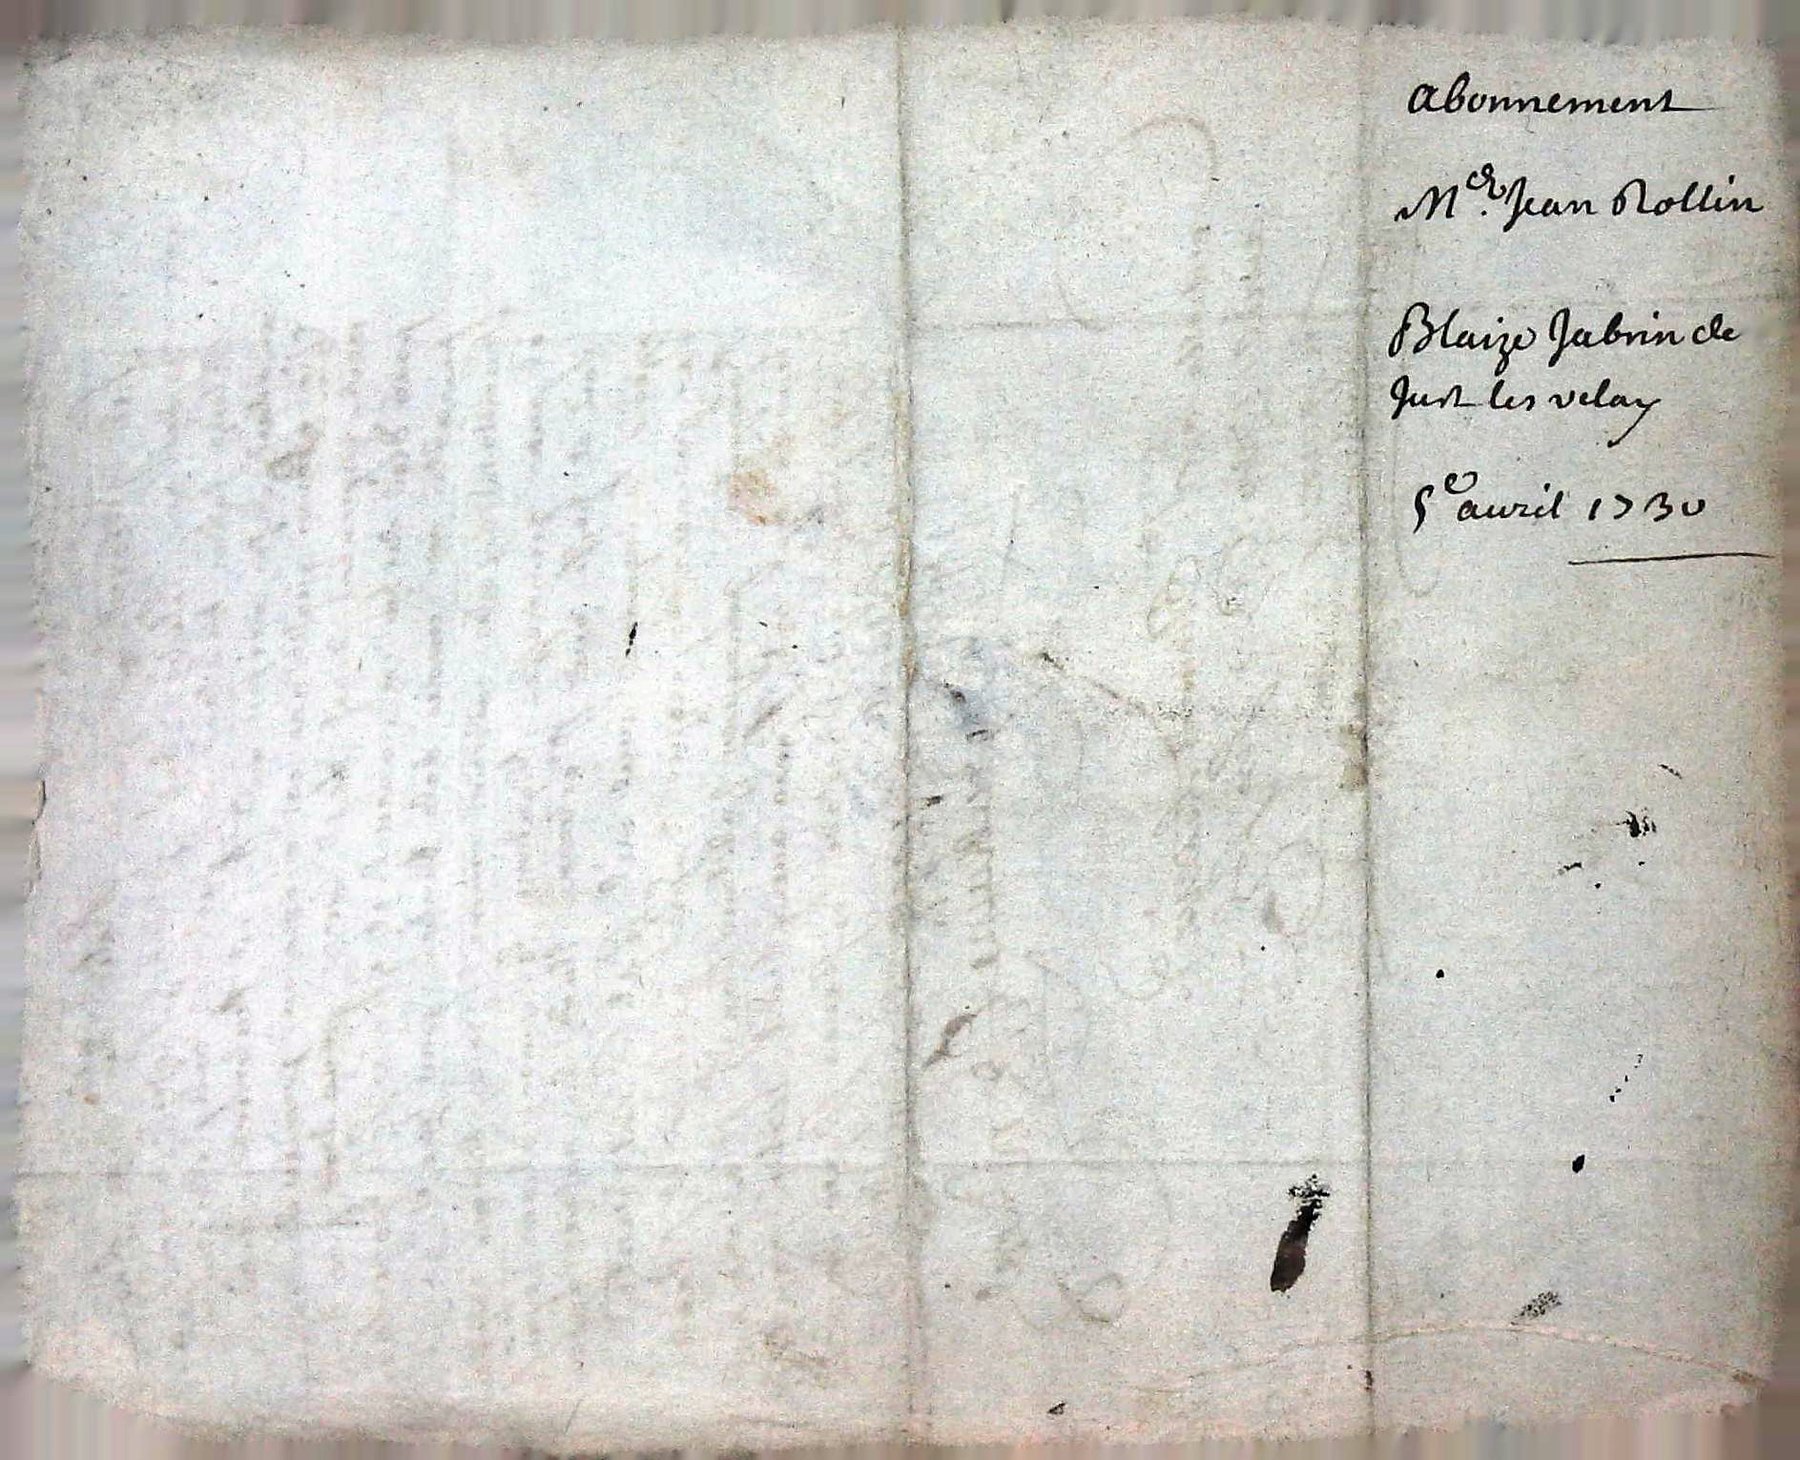 abonnement
Me Jean Rollin
Blaize Jabrin de
Just les velay
5e auril 1730